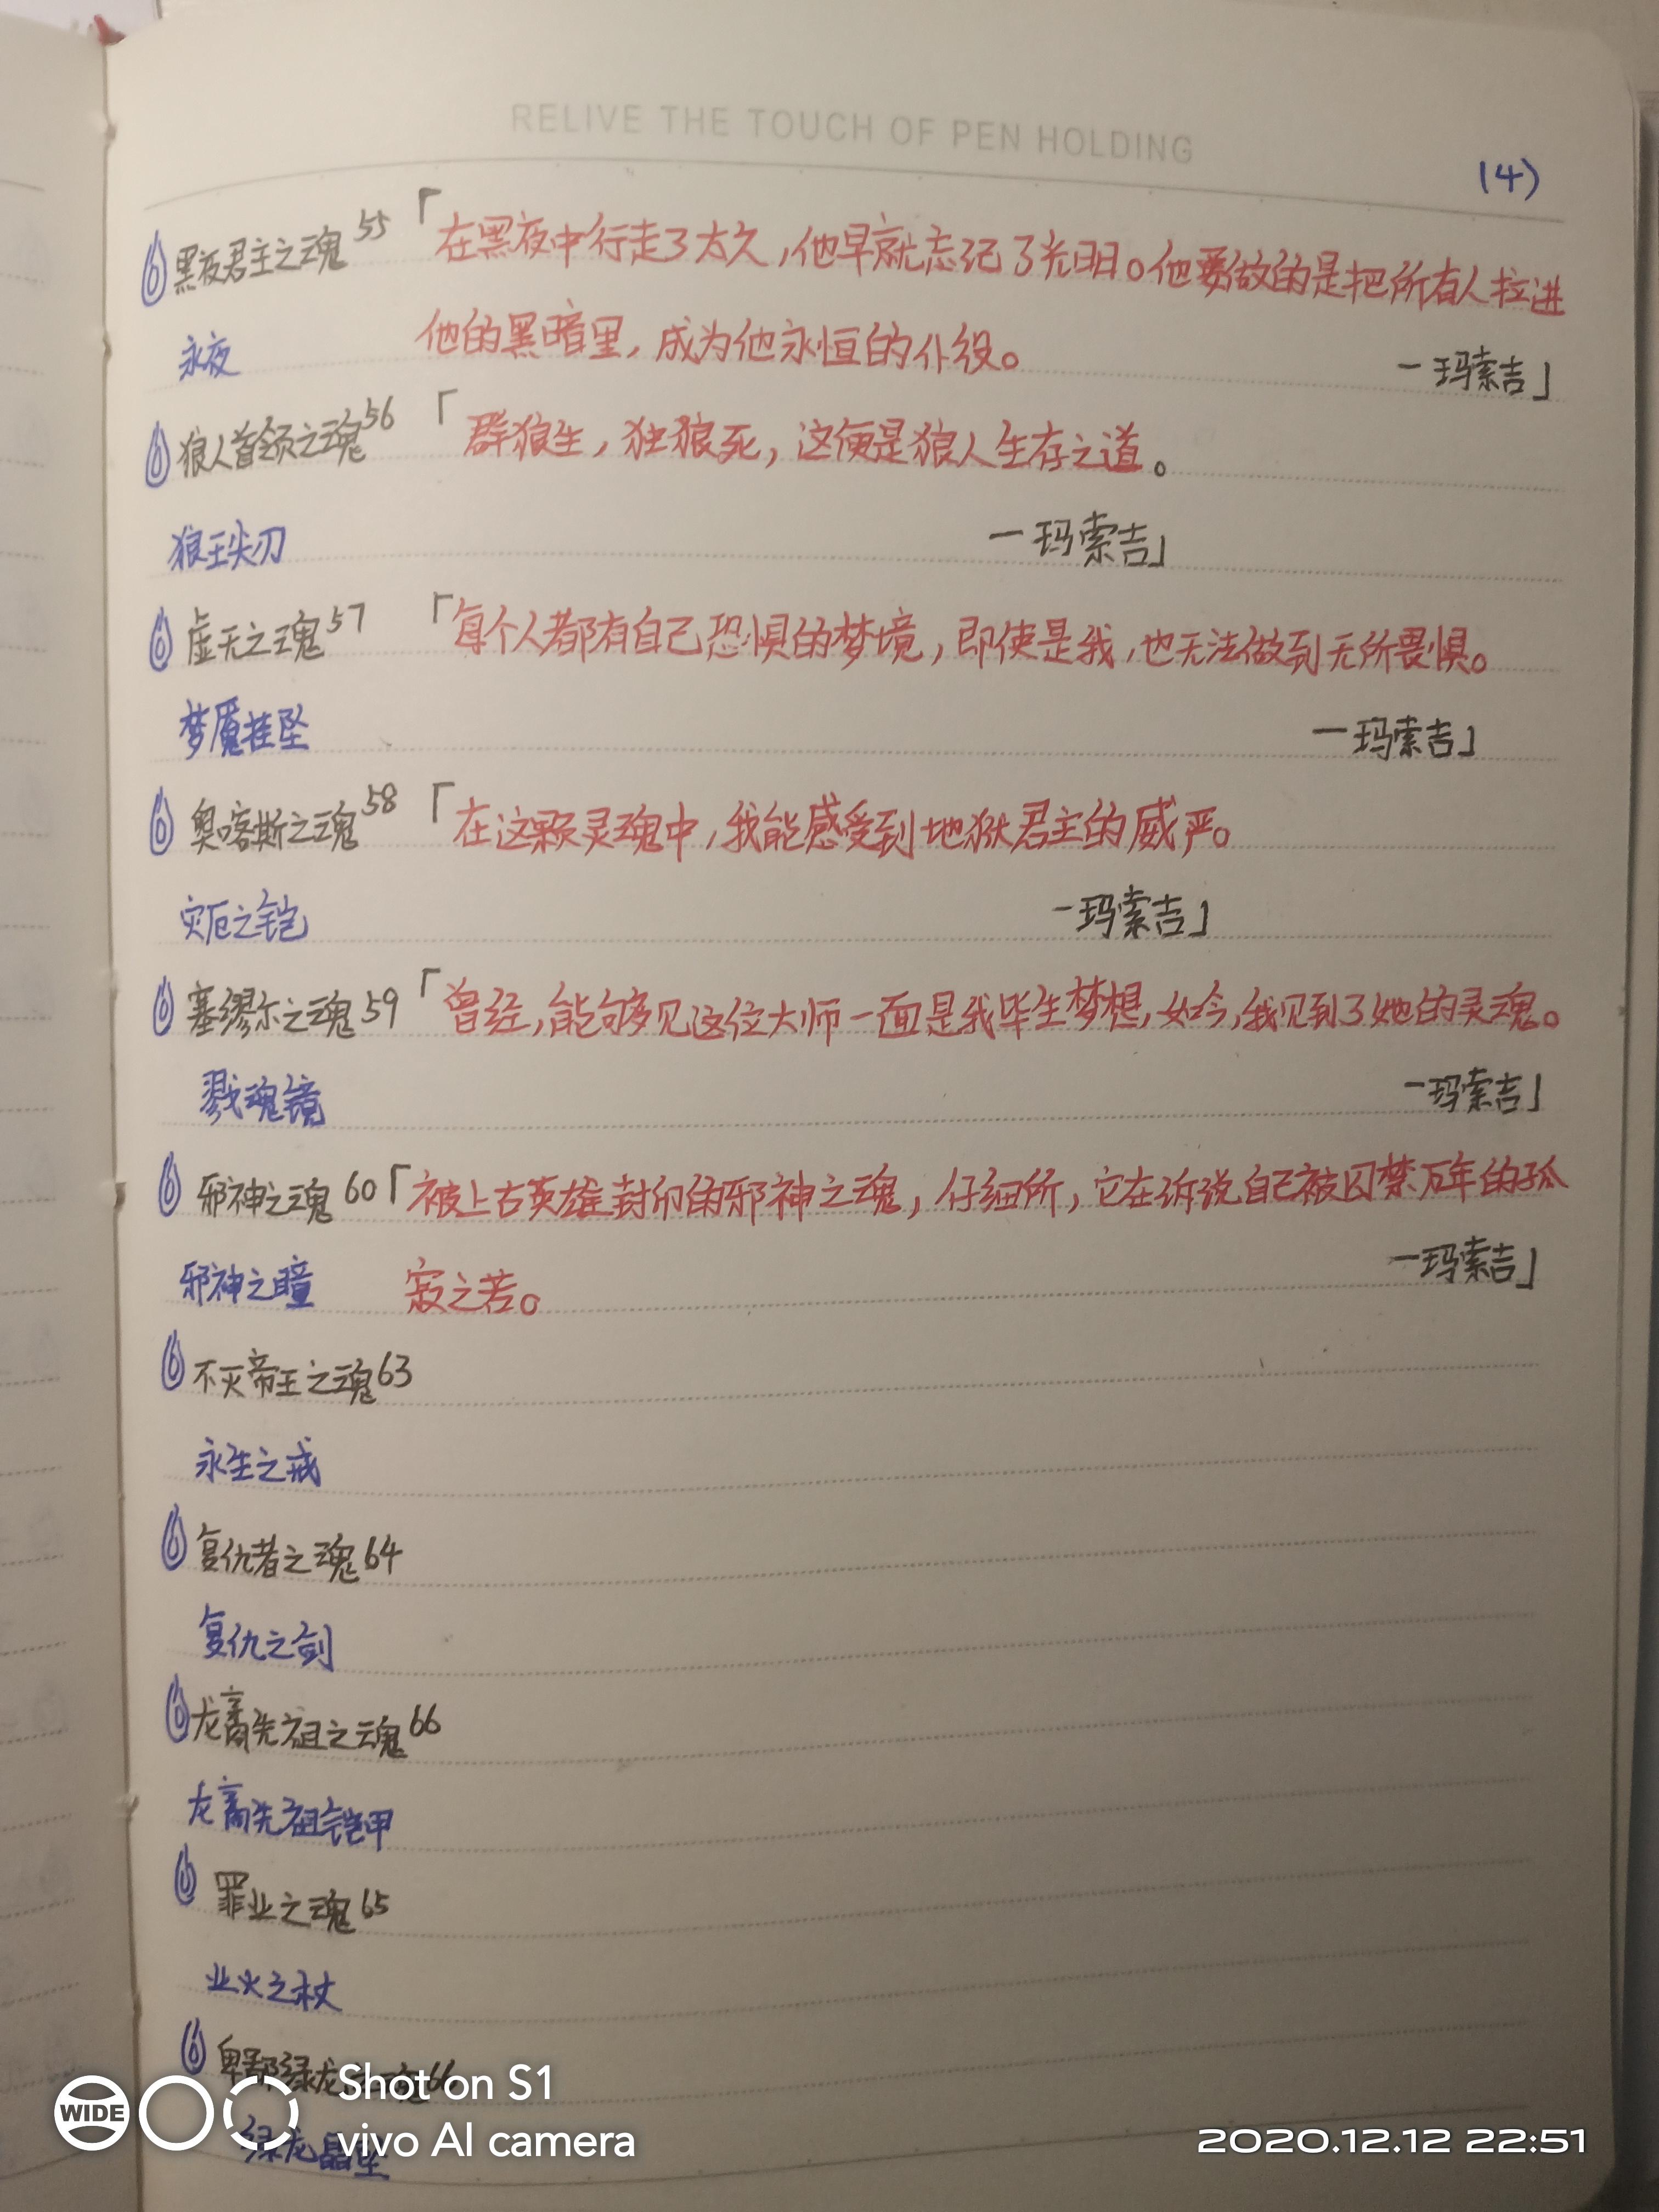 RELIVE THE TOUCH OF PEN HOLDING
(4)
黑夜君主之魂55 「在黑夜中行走了太久,他早就忘记了光明。他要做的是把所有人拉进
永夜 他的黑暗里,成为他永恒的仆役。 —玛索吉」
狼人首领之魂56 「群狼生,独狼死,这便是狼人生存之道。
狼王尖刃 —玛索吉」
虚无之魂57 「每个人都有自己恐惧的梦境,即使是我,也无法做到无所畏惧。
梦魇挂坠 —玛索吉」
奥喀斯之魂58 「在这颗灵魂中,我能感受到地狱君主的威严。
灾厄之铠 —玛索吉」
塞缪尔之魂59 「曾经,能够见这位大师一面是我毕生梦想,如今,我见到了她的灵魂。
戮魂镜 —玛索吉」
邪神之魂60「被上古英雄封印的邪神之魂,仔细听,它在诉说自己被囚禁万年的孤
邪神之瞳 寂之苦。 —玛索吉」
不灭帝王之魂63
永生之戒
复仇者之魂64
复仇之剑
龙裔先祖之魂66
龙裔先祖铠甲
罪业之魂65
业火之杖
卑鄙绿龙之魂66
绿龙晶坠
WIDE
Shot on S1
vivo AI camera
2020.12.12 22:51